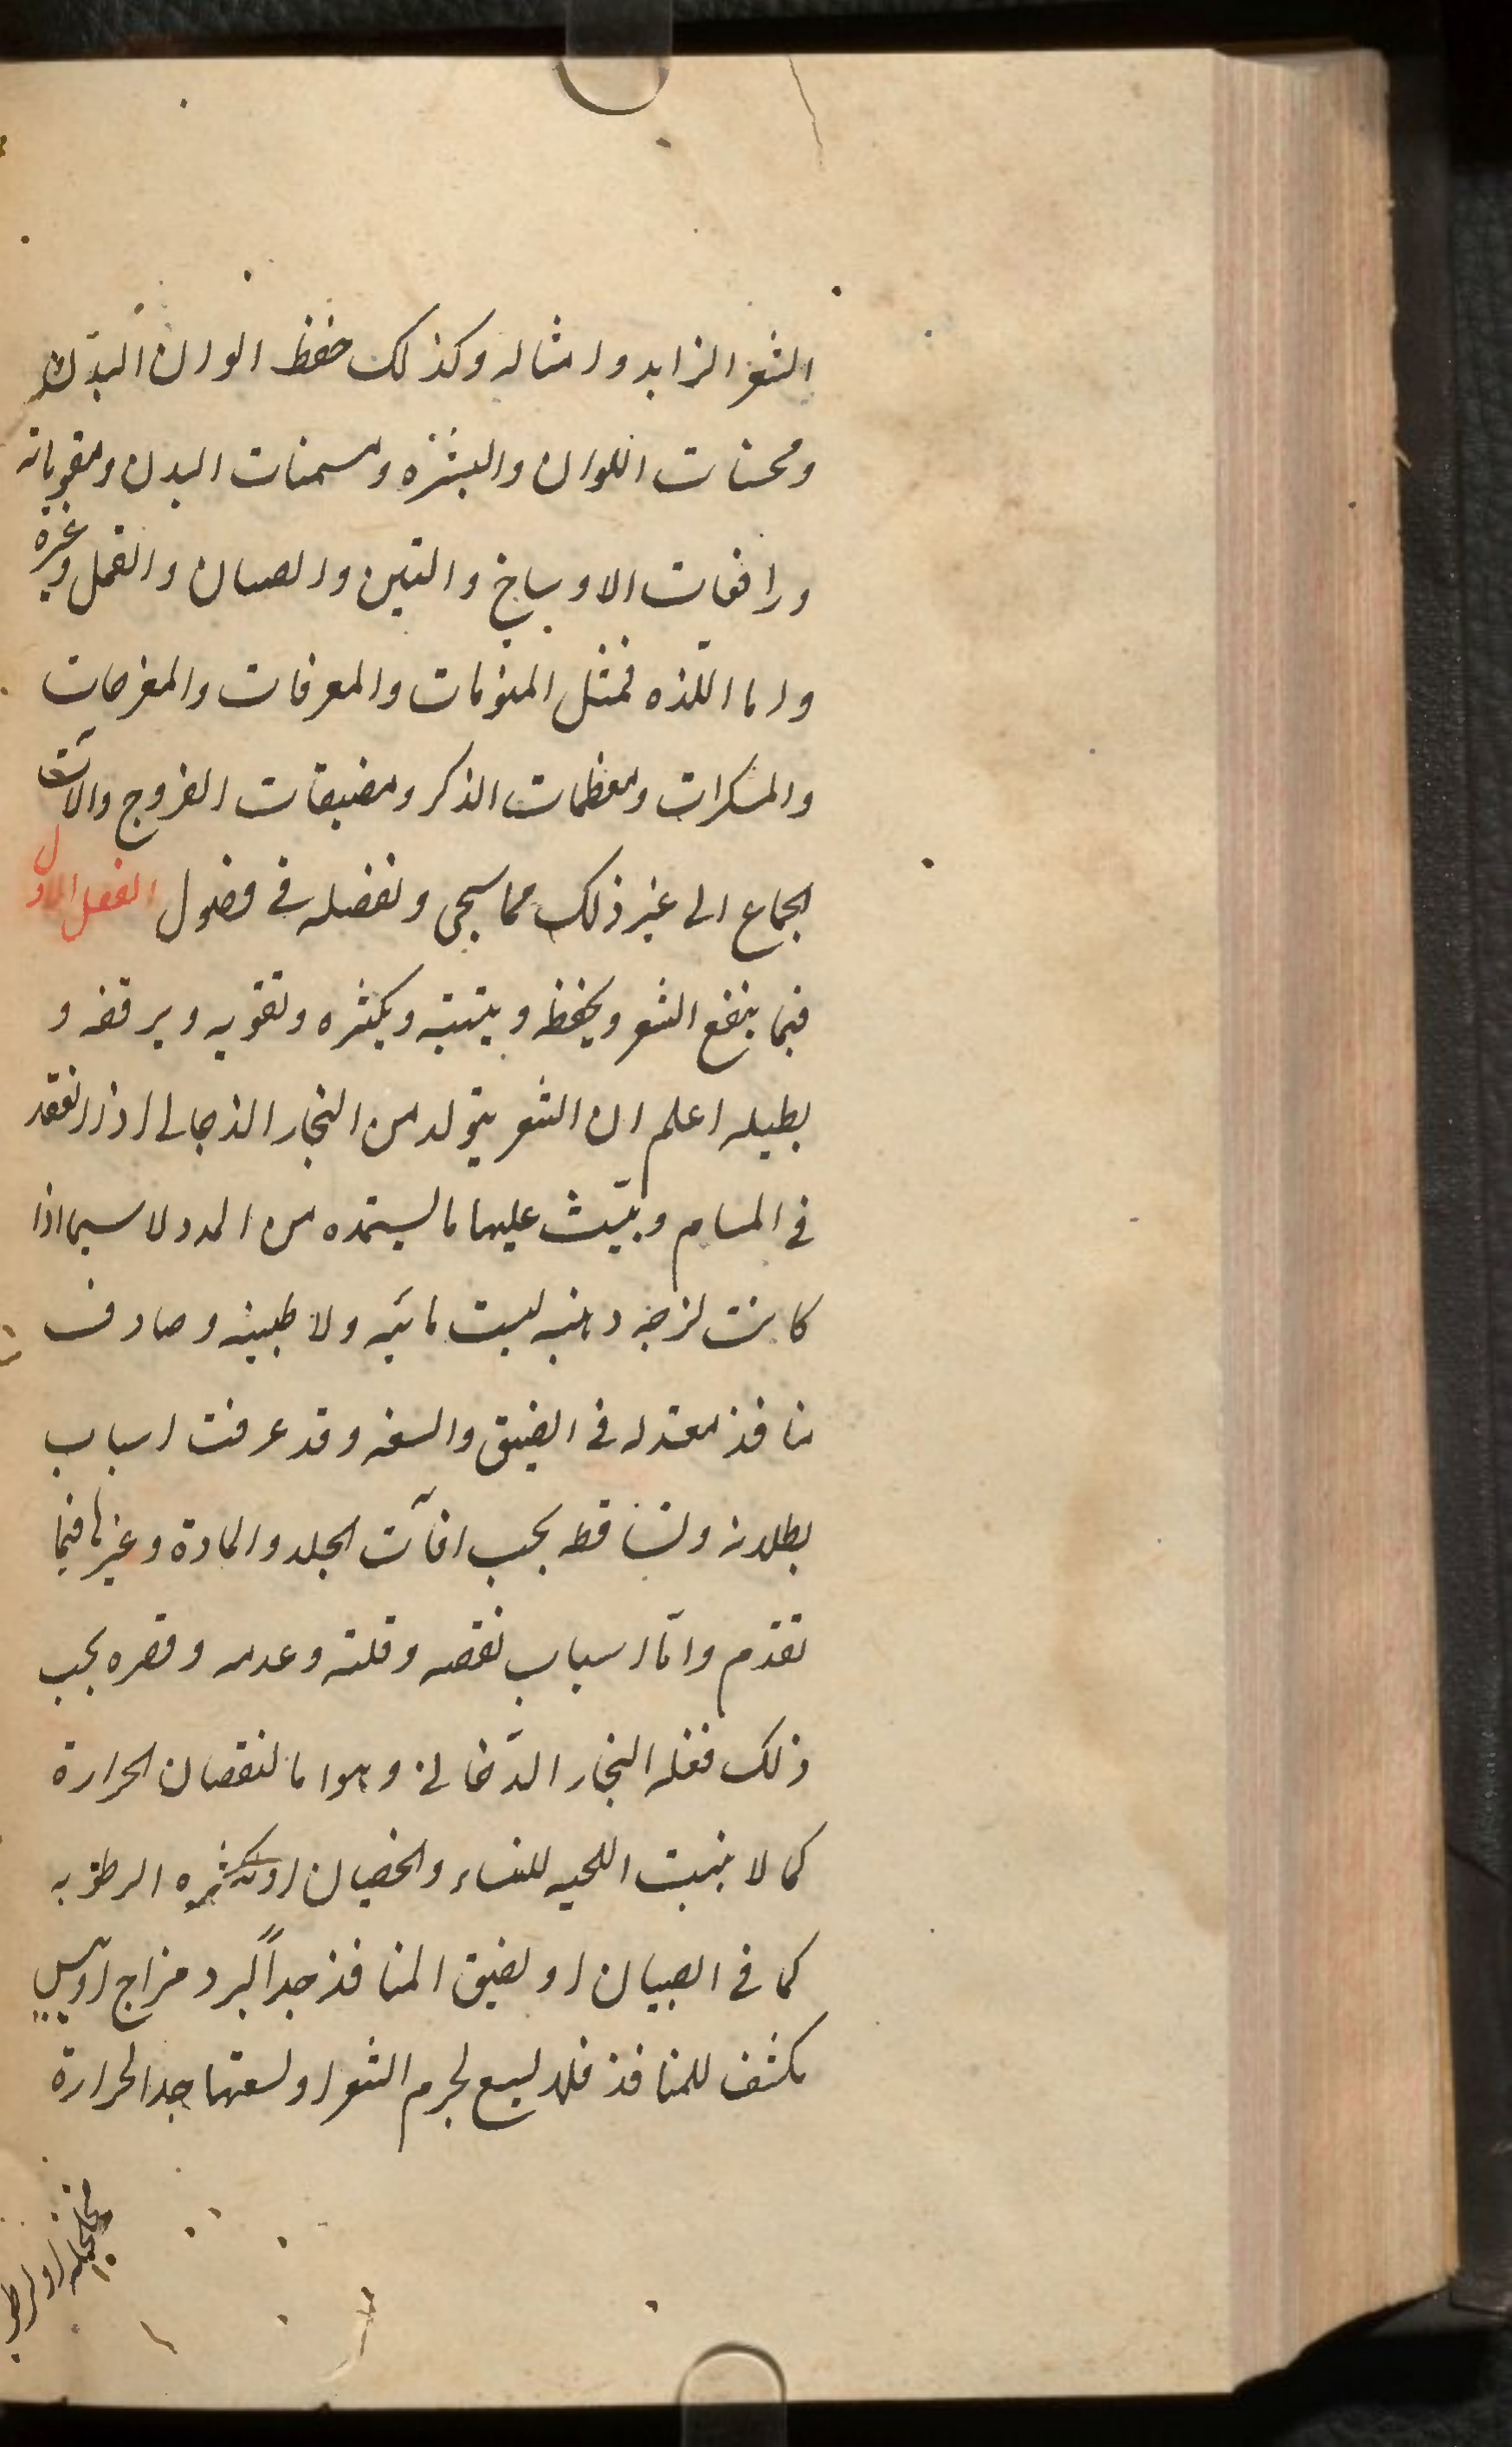 الشعر الزايد وامثاله وكذلك حفظ الوان البدن
ومحسنات اللوان والبشره ومسمنات البدن ومقوياته
ورافعات الاوساخ والصبان والقمل وغيره
واما اللّذه فمثل المنومات والمعرفات والمفرحات
والمسكرات ومعظمات الذكر ومضيقات الفروج والات
الجماع الى غير ذلك مما سيجى ونفصله فى فصول الفصل الاول
فيما ينفع الشعر ويحفظه وينبته ويكثره وتقويه ويرققه و
يطيله اعلم ان الشعر يتولد من البخار الدخانى اذا انعقد
فى المسام وينبت عليها ما يستمده من المدد لا سيما اذا
كانت لزجه دهنيه ليست مائيه ولا طينيه وصادف
منافذ معتدله فى الضيق والسعه وقد عرفت اسباب
بطلانه وتساقطه بحسب افآت الجلد والمادة وغيرها فيما
تقدم وامّا اسباب نقصه وقلته وعدمه وقصره بحسب
ذلك فقله البخار الدّخانى وهو اما لنقصان الحرارة
كما لا ينبت اللحيه للنساء والخصيان او لكثره الرطوبه
كما فى الصبيان او لضيق المنافذ جداً لبرد مزاج او يبس
مكثف للمنافذ فلا يسع لجرم الشعر او لسعتها جدا لحرارة
مخلخله او لرطوبه